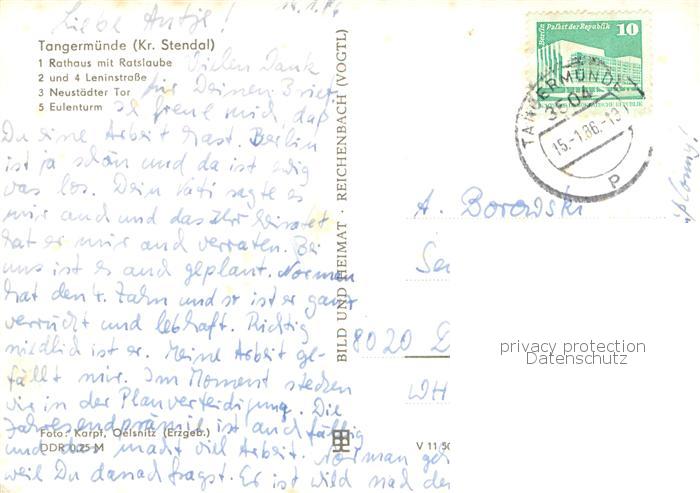 14.1.86
Liebe Antje!
Tangermünde (Kr. Stendal)
1 Rathaus mit Ratslaube
2 und 4 Leninstraße
3 Neustädter Tor
5 Eulenturm
Vielen Dank
für Deinen Brief.
Ich freue mich, daß
Du eine Arbeit hast. Berlin
ist ja schön und da ist ewig
was los. Dein Vati sagte es
mir auch und das Ihr heiratet
hat er mir auch verraten. Bei
uns ist es auch geplant. Norman
hat den 4. Zahn und ist er ganz
verrückt und lebhaft. Richtig
niedlich ist er. Meine Arbeit ge-
fällt mir. Im Moment stecken
wir in der Planverteidigung. Die
Jahresendprämie ist auch fällig
und das macht viel Arbeit. Norman geh
weil Du danach fragst. Er ist wild nach de
Foto: Karpf, Oelsnitz (Erzgeb.)
DDR 0,25 M
BILD UND HEIMAT · REICHENBACH (VOGTL)
V 11 50
Berlin Palast der Republik
10
DEUTSCHE DEMOKRATISCHE REPUBLIK
TANGERMÜNDE 1
3504
15.-1.86.-13
P
A. Borowski
8020 D
WH
privacy protection
Datenschutz